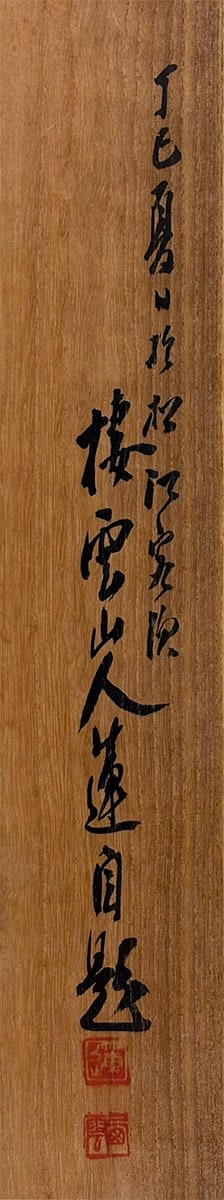 丁巳夏日於松江客次
棲雲山人蓮自題
蓮
雲